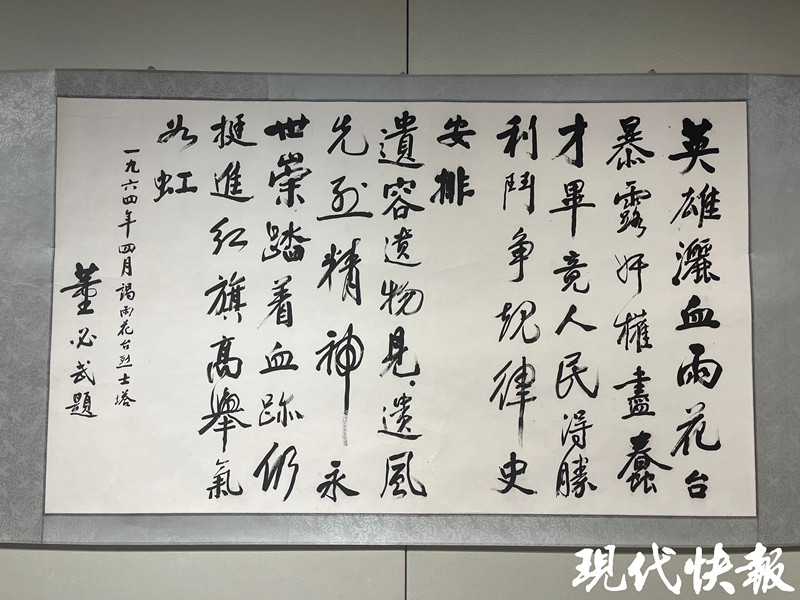 英雄灑血雨花台
暴露奸權盡蠢
才畢竟人民得勝
利鬥争規律史
安排
遺容遺物見遺風
先烈精神永
世崇踏着血跡仍
挺進紅旗高舉氣
如虹
一九六四年四月謁雨花台烈士塔
董必武題
現代快報